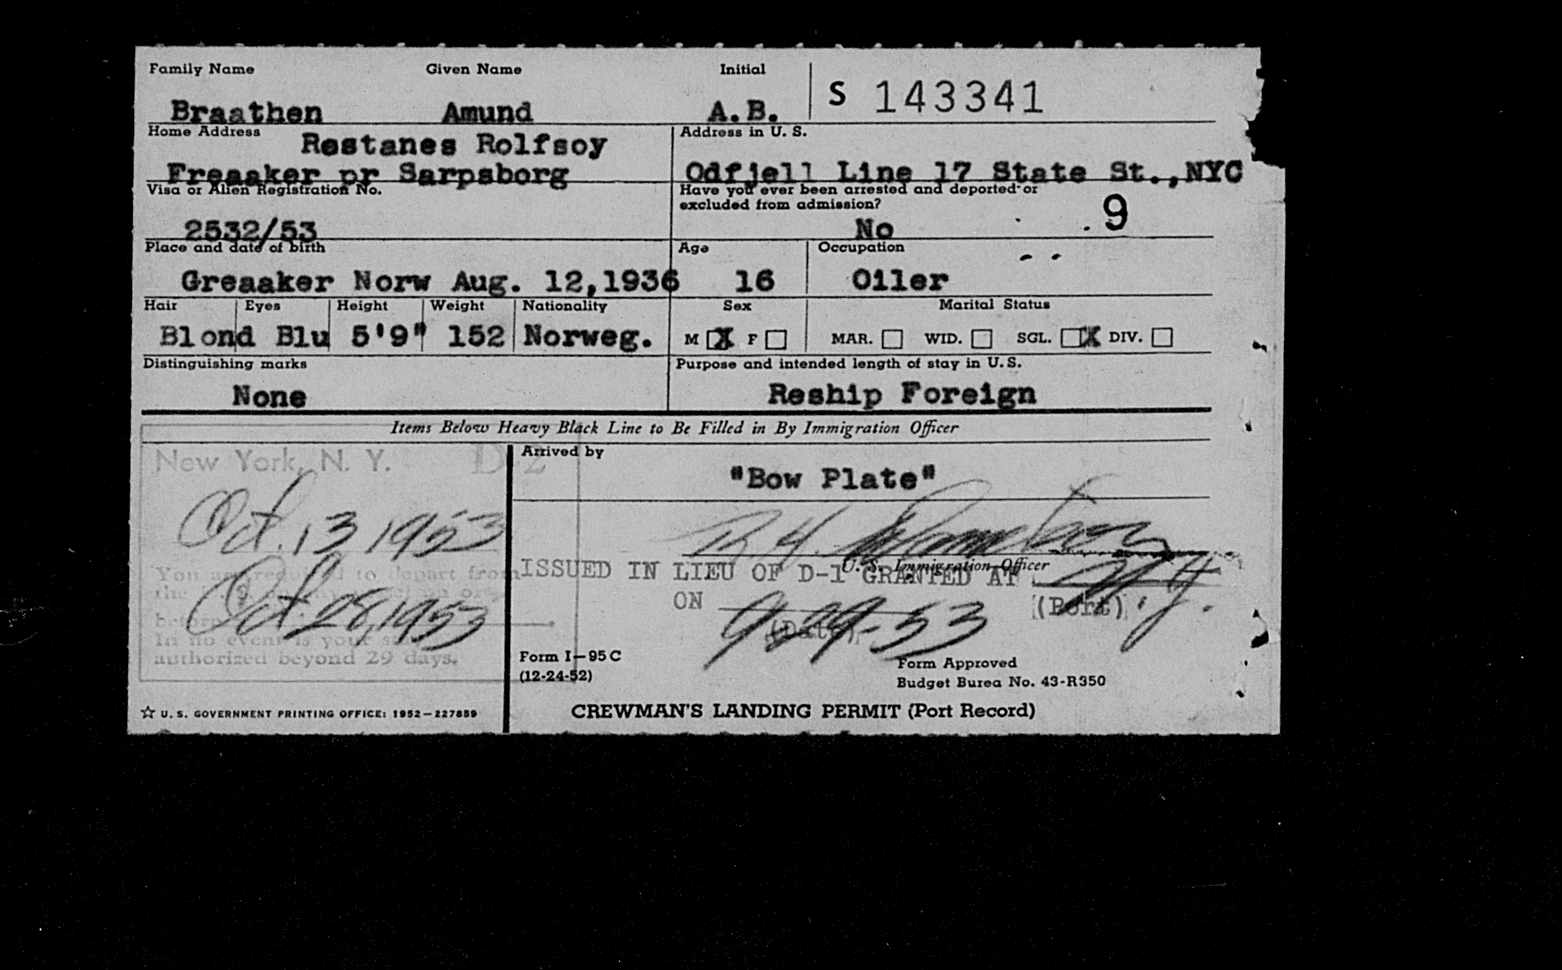 Family Name Given Name Initial
S 143341
Braathen Amund A.B.
Home Address Address in U. S.
Restanes Rolfsoy
Freaaker pr Sarpsborg Odfjell Line 17 State St.,NYC
Visa or Alien Registration No. Have you ever been arrested and deported or
excluded from admission?
2532/53 No 9
Place and date of birth Age Occupation
Greaaker Norw Aug. 12,1936 16 Oiler
Hair Eyes Height Weight Nationality Sex Marital Status
Blond Blu 5'9" 152 Norweg. M X F MAR. WID. SGL. X DIV.
Distinguishing marks Purpose and intended length of stay in U.S.
None Reship Foreign
Items Below Heavy Black Line to Be Filled in By Immigration Officer
New York, N. Y. D 2 Arrived by
"Bow Plate"
Oct. 13 1953
R H
U. S. Immigration Officer
You are required to depart from ISSUED IN LIEU OF D-1 GRANTED AT N.Y.
the
Oct. 28, 1953 ON 9-29-53 (Port)
before (Date)
In no event is your
authorized beyond 29 days.
Form I-95C Form Approved
(12-24-52) Budget Burea No. 43-R350
☆ U. S. GOVERNMENT PRINTING OFFICE: 1952-227859 CREWMAN'S LANDING PERMIT (Port Record)